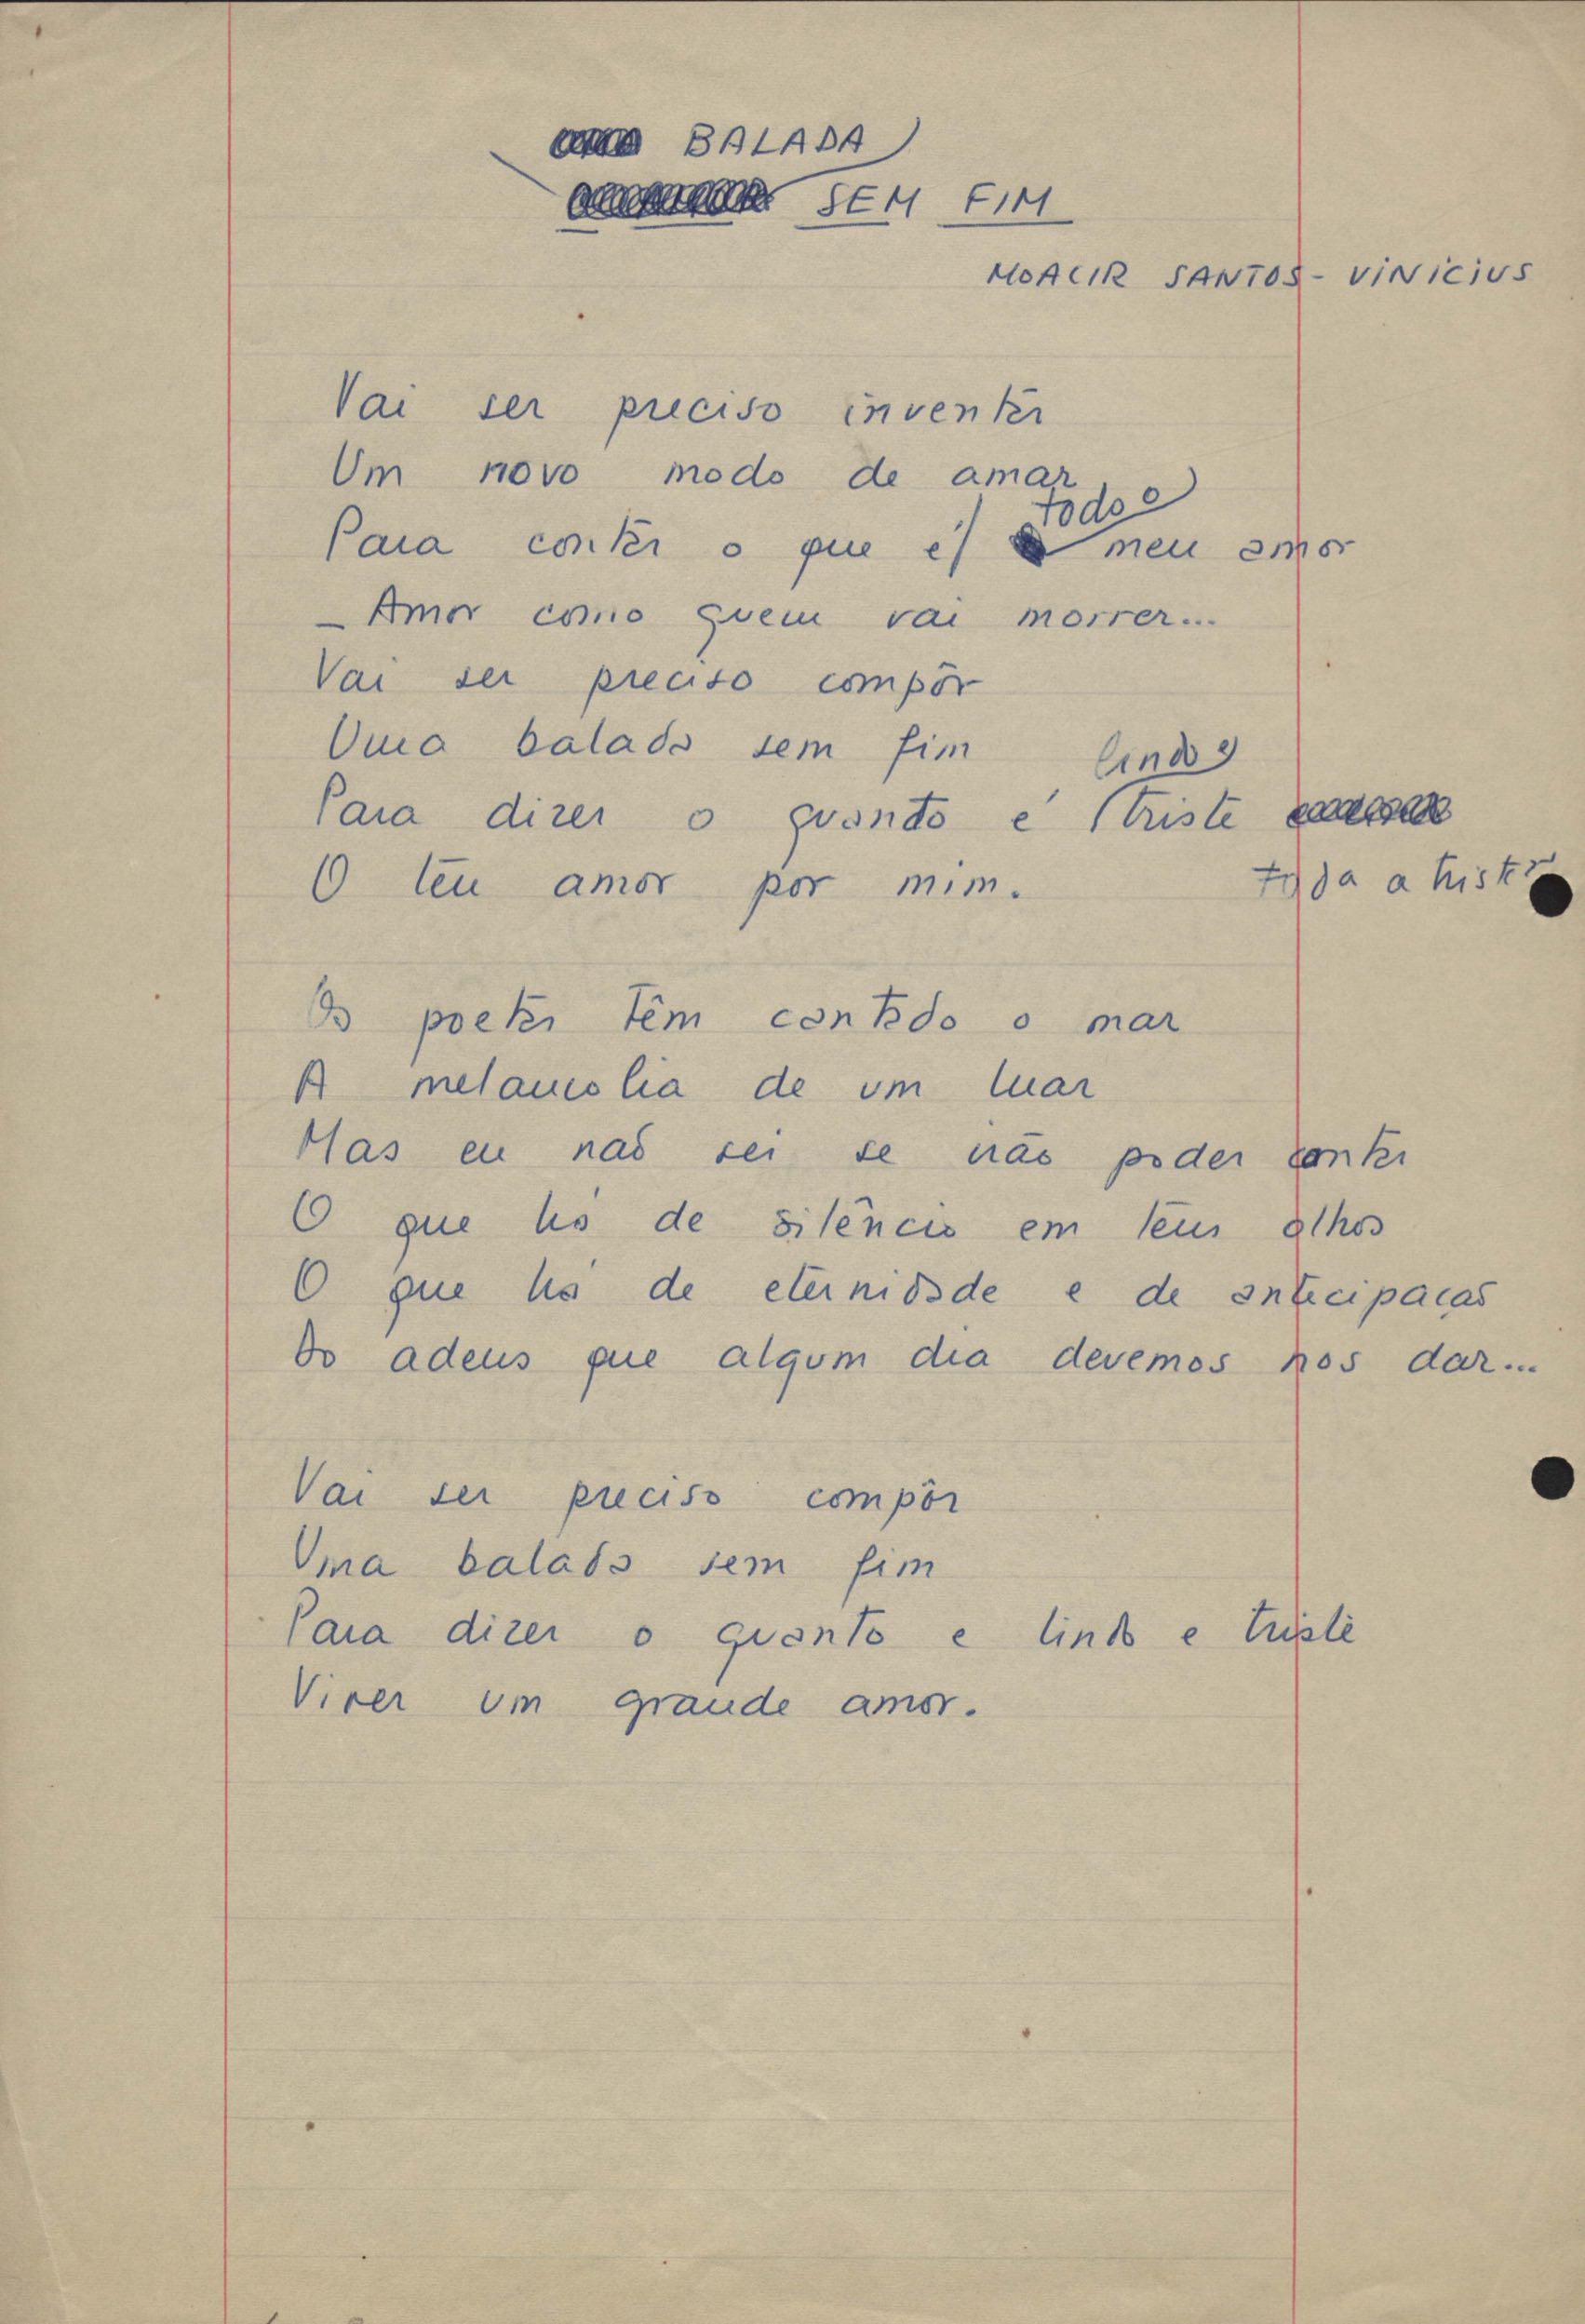 BALADA
SEM FIM
MOACIR SANTOS - VINICIUS
Vai ser preciso inventar
Um novo modo de amar
todo o
Para contar o que é meu amor
- Amor como quem vai morrer...
Vai ser preciso compôr
Uma balada sem fim
lindo e
Para dizer o quanto é triste
O teu amor por mim.
toda a
Os poetas têm contado o mar
A melancolia de um luar
Mas eu não sei se vão poder contar
O que há de silêncio em teus olhos
O que há de eternidade e de antecipação
Do adeus que algum dia devemos nos dar...
Vai ser preciso compôr
Uma balada sem fim
Para dizer o quanto e lindo e triste
Viver um grande amor.